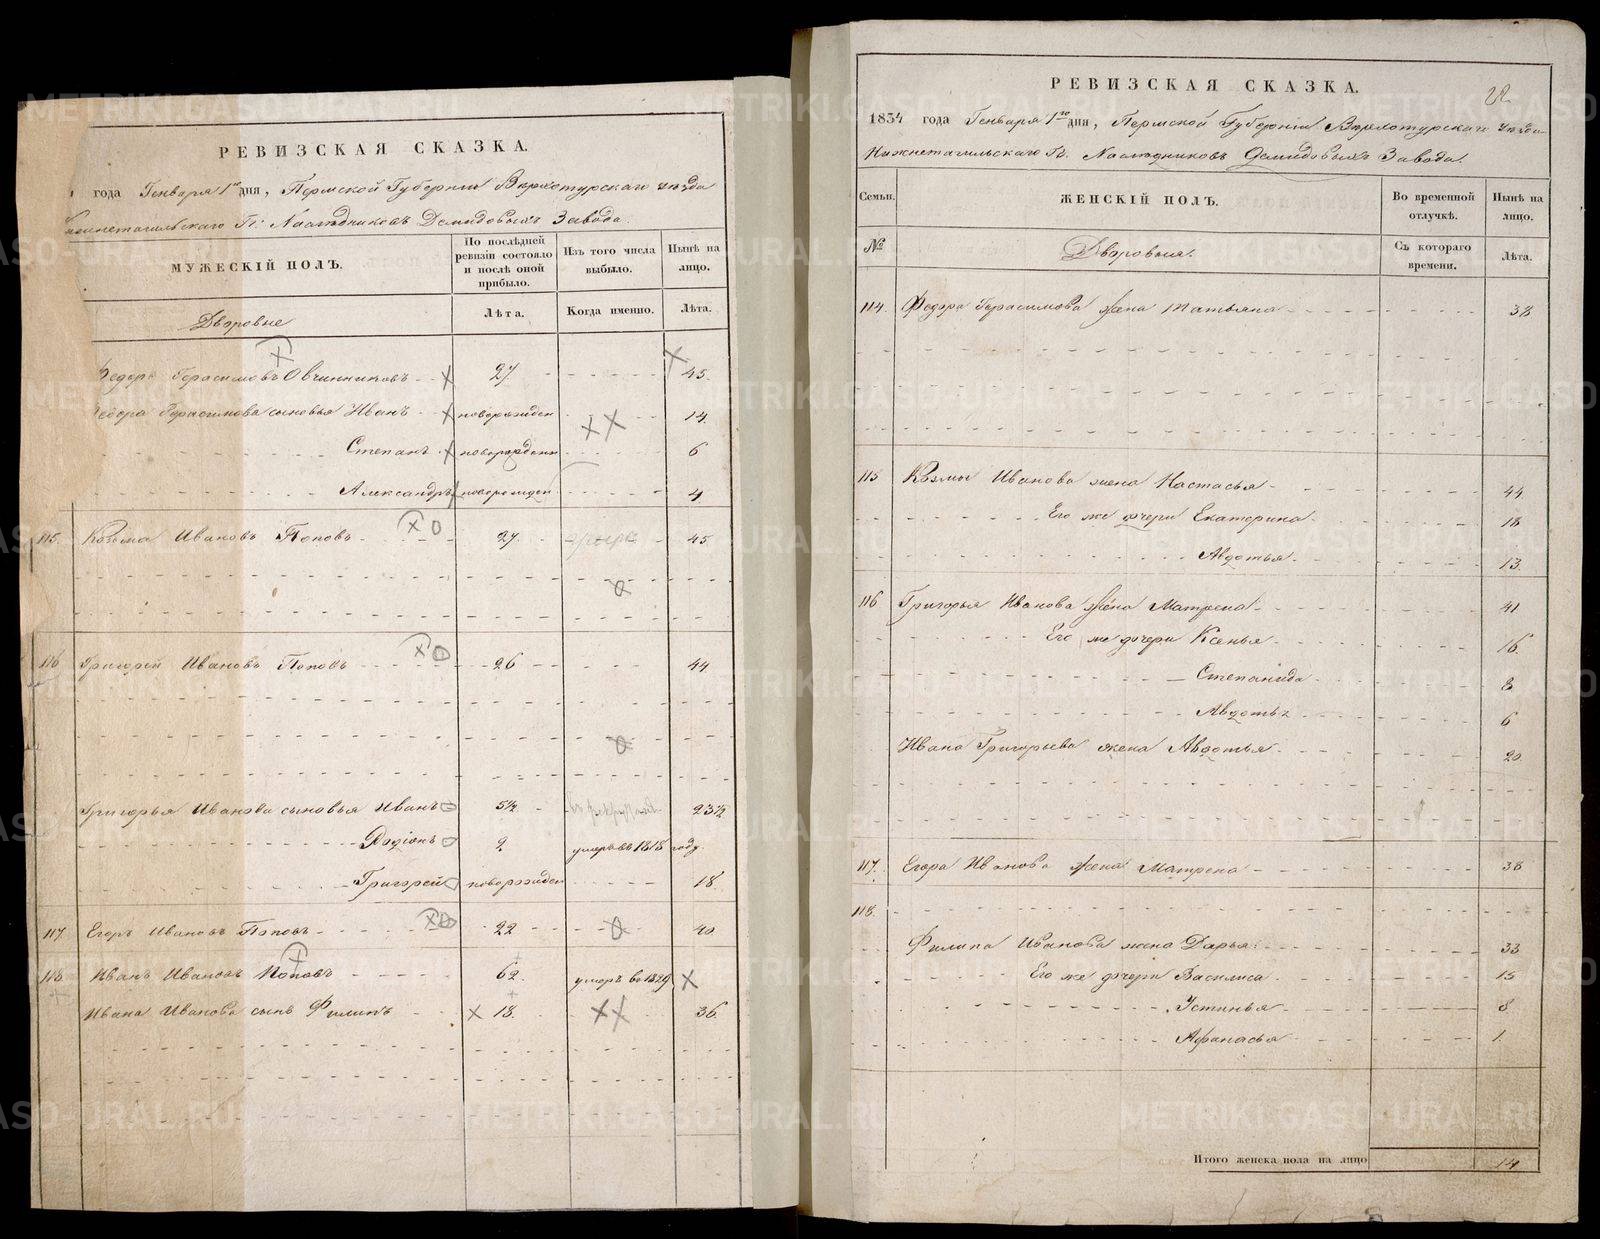 РЕВИЗСКАЯ СКАЗКА.
года Генваря 1го дня, Пермской Губерніи Верхотурскаго уѣзда
Гг. Наслѣдниковъ Демидовыхъ Завода.
МУЖЕСКІЙ ПОЛЪ.
По послѣдней ревизіи состояло и послѣ оной прибыло.
Изъ того числа выбыло.
Нынѣ на лицо.
Дворовые
Лѣта.
Когда именно.
Лѣта.
Федоръ Герасимовъ Овчинниковъ 27 45.
Федора Герасимова сыновья Иванъ новорожден 14.
Степанъ новорожденн 6
Александръ новорожден 4
115. Козьма Ивановъ Поповъ 27 45.
116 Григорей Ивановъ Поповъ 26 44
Григорья Иванова сыновья Иванъ 5½ 23½
Родіонъ 2 умеръ въ 1818 году.
Григорей новорожден 18.
117. Егоръ Ивановъ Поповъ 22 40
118 Иванъ Ивановъ Поповъ 62 умеръ во 1829
Ивана Иванова сынъ Филипъ 18. 36.
РЕВИЗСКАЯ СКАЗКА.
1834 года Генваря 1го дня, Пермской Губерніи Верхотурскаго уѣзда
Нижнетагильскаго Гг. Наслѣдниковъ Демидовыхъ Завода.
Семьи.
ЖЕНСКІЙ ПОЛЪ.
Во временной отлучкѣ.
Нынѣ на лицо.
№
Дворовыя.
Съ котораго времени.
Лѣта.
114. Федора Герасимова жена Татьяна 38
115 Козмы Иванова жена Настасья 44
Его же дочери Екатерина 18
Авдотья 13.
116 Григорья Иванова жена Матрена 41
Его же дочери Ксенья 16.
Степанида 8
Авдотья 6
Ивана Григорьева жена Авдотья 20
117. Егора Иванова жена Матрена 38
118.
Филипа Иванова жена Дарья 33
Его же дочери Василиса 15
Устинья 8
Афанасья 1.
Итого женска пола на лицо 14
METRIKI.GASO-URAL.RU